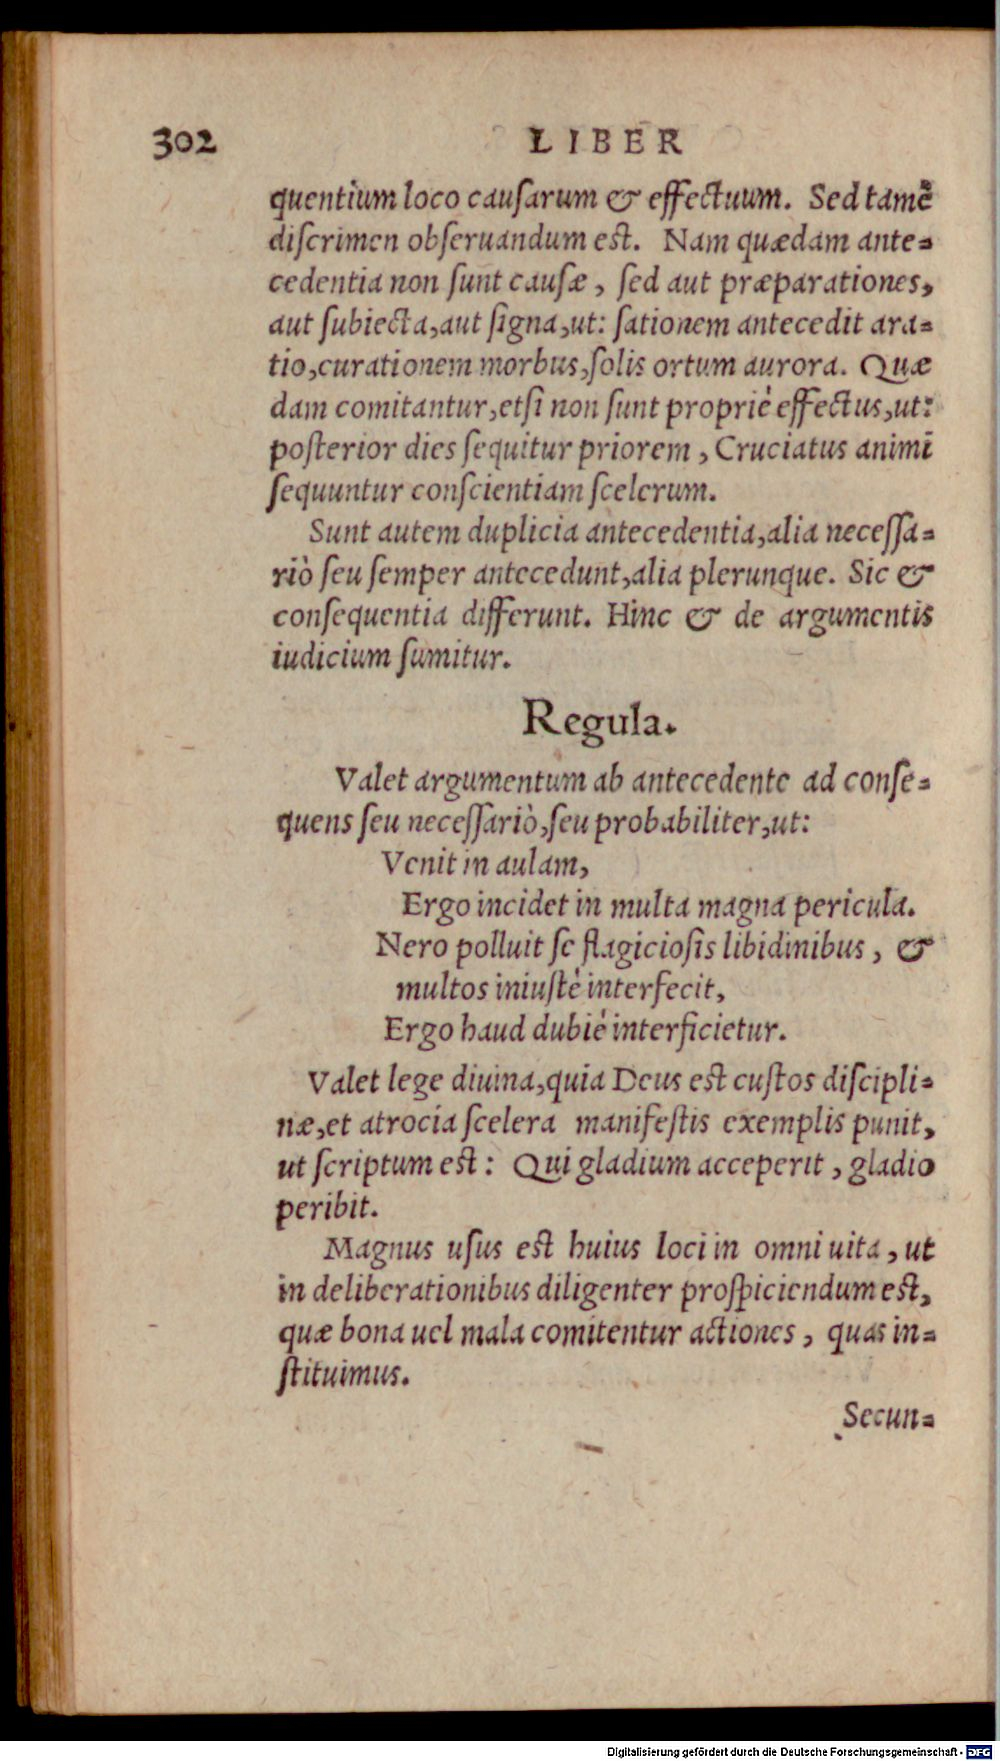 302 LIBER
quentium loco cauſarum & effectuum. Sed tamẽ
diſcrimen obſeruandum est. Nam quædam ante⸗
cedentia non ſunt cauſæ, ſed aut præparationes,
aut ſubiecta, aut ſigna, ut: ſationem antecedit ara⸗
tio, curationem morbus, ſolis ortum aurora. Quæ
dam comitantur, etſi non ſunt propriè effectus, ut:
poſterior dies ſequitur priorem, Cruciatus animi
ſequuntur conſcientiam ſcelerum.
Sunt autem duplicia antecedentia, alia neceſſa⸗
riò ſeu ſemper antecedunt, alia plerunque. Sic &
conſequentia differunt. Hinc & de argumentis
iudicium ſumitur.
Regula.
Valet argumentum ab antecedente ad conſe⸗
quens ſeu neceſſariò, ſeu probabiliter, ut:
Venit in aulam,
Ergo incidet in multa magna pericula.
Nero polluit ſe flagicioſis libidinibus, &
multos iniuſtè interfecit,
Ergo haud dubiè interficietur.
Valet lege diuina, quia Deus est cuſtos diſcipli⸗
næ, et atrocia ſcelera manifeſtis exemplis punit,
ut ſcriptum est: Qui gladium acceperit, gladio
peribit.
Magnus uſus est huius loci in omni uita, ut
in deliberationibus diligenter proſpiciendum est,
quæ bona uel mala comitentur actiones, quas in⸗
ſtituimus.
Secun⸗
Digitalisierung gefördert durch die Deutsche Forschungsgemeinschaft - DFG